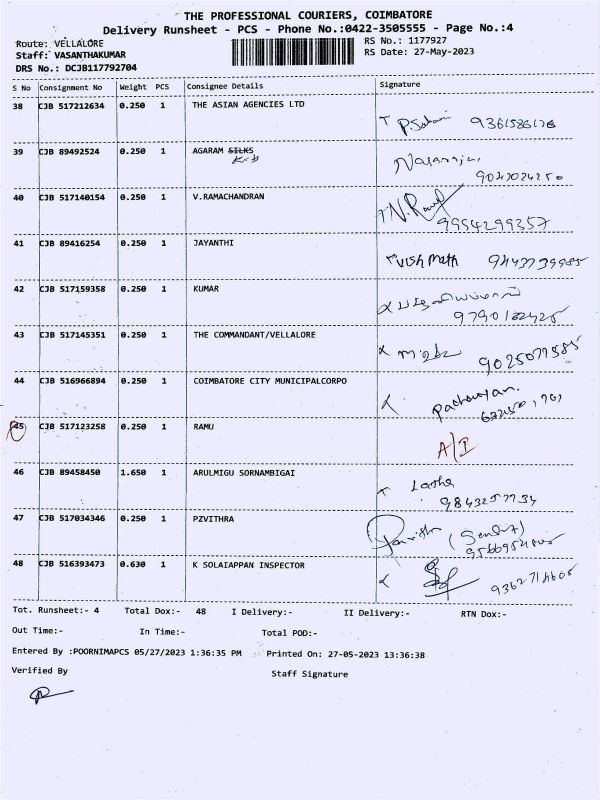 THE PROFESSIONAL COURIERS, COIMBATORE
Delivery Runsheet - PCS - Phone No.:0422-3505555 - Page No.:4
Route: VELLALORE RS No.: 1177927
Staff: VASANTHAKUMAR RS Date: 27-May-2023
DRS No.: DCJB117792704
S No Consignment No Weight PCS Consignee Details Signature
38 CJB 517212634 0.250 1 THE ASIAN AGENCIES LTD
39 CJB 89492524 0.250 1 AGARAM SILKS
40 CJB 517140154 0.250 1 V.RAMACHANDRAN
9954299357
41 CJB 89416254 0.250 1 JAYANTHI
42 CJB 517159358 0.250 1 KUMAR
43 CJB 517145351 0.250 1 THE COMMANDANT/VELLALORE
9025077585
44 CJB 516966894 0.250 1 COIMBATORE CITY MUNICIPALCORPO
45 CJB 517123258 0.250 1 RAMU
A/I
46 CJB 89458450 1.650 1 ARULMIGU SORNAMBIGAI
Latha
9843257734
47 CJB 517034346 0.250 1 PZVITHRA
48 CJB 516393473 0.630 1 K SOLAIAPPAN INSPECTOR
Tot. Runsheet:- 4 Total Dox:- 48 I Delivery:- II Delivery:- RTN Dox:-
Out Time:- In Time:- Total POD:-
Entered By :POORNIMAPCS 05/27/2023 1:36:35 PM Printed On: 27-05-2023 13:36:38
Verified By Staff Signature